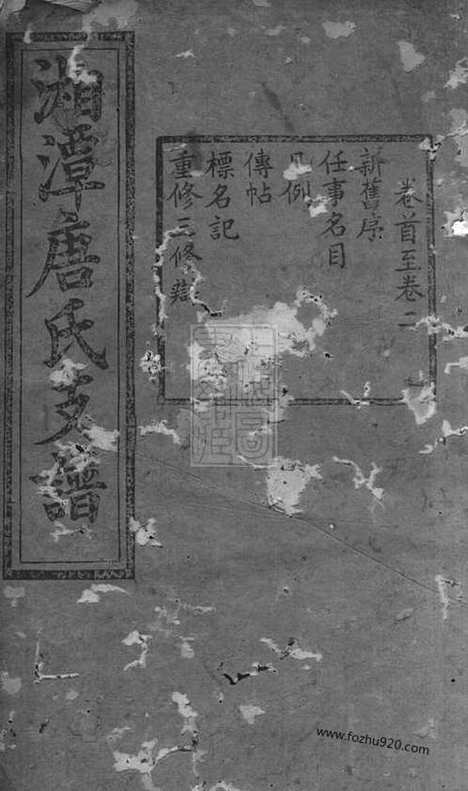 湘潭唐氏支譜
卷首至卷二
新舊序
任事名目
凡例
傳帖
標名記
重修三修
www.fozhu920.com